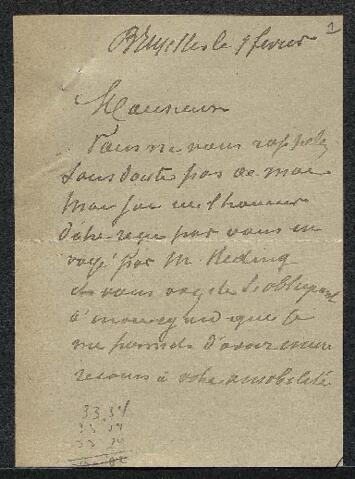 Bruxelles le 9 fevrier
1
Monsieur
Vous ne vous rappelez
sans doute pas de moi
Moi j'ai eu l'honneur
d'être reçu par vous en
voyé par M. Reding
et vous avez été si obligeant
à mon egard que je
me permets d'avoir encore
recours à votre amabilité
33.34
33.34
33 34